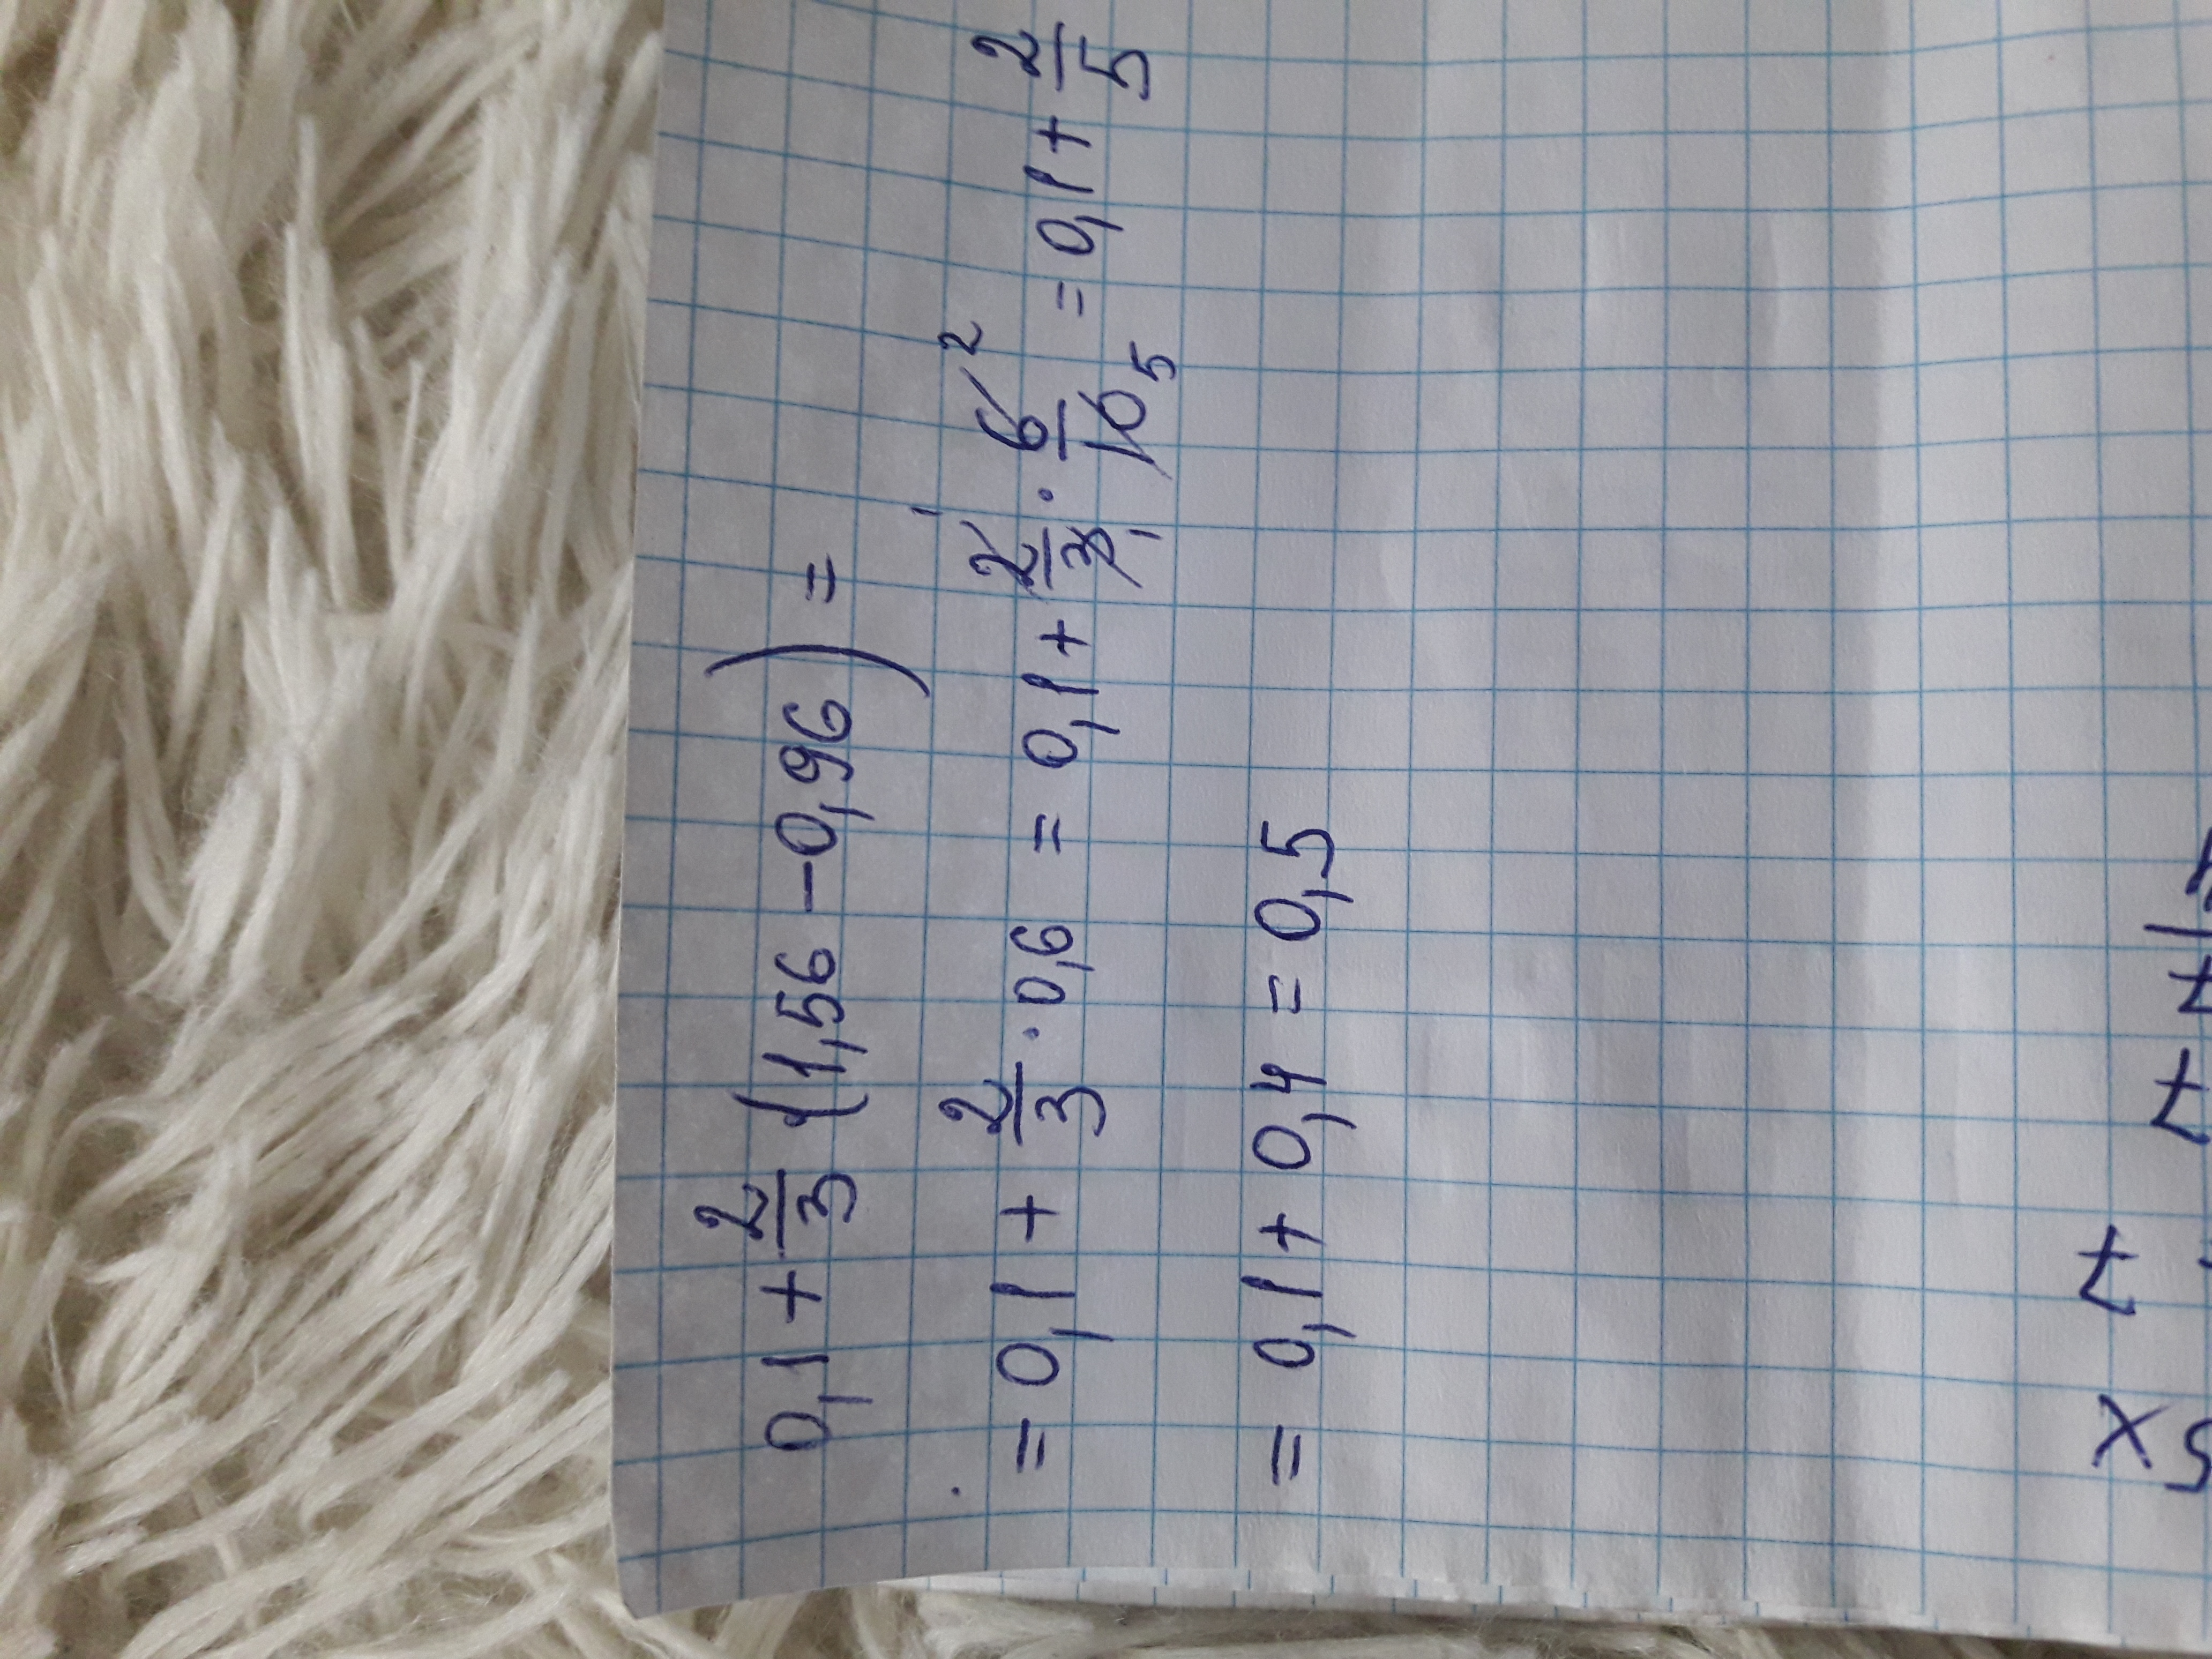 0,1 + 2/3 (1,56 - 0,96) =
= 0,1 + 2/3 · 0,6 = 0,1 + 2/3 · 6/10 = 0,1 + 2/5
= 0,1 + 0,4 = 0,5